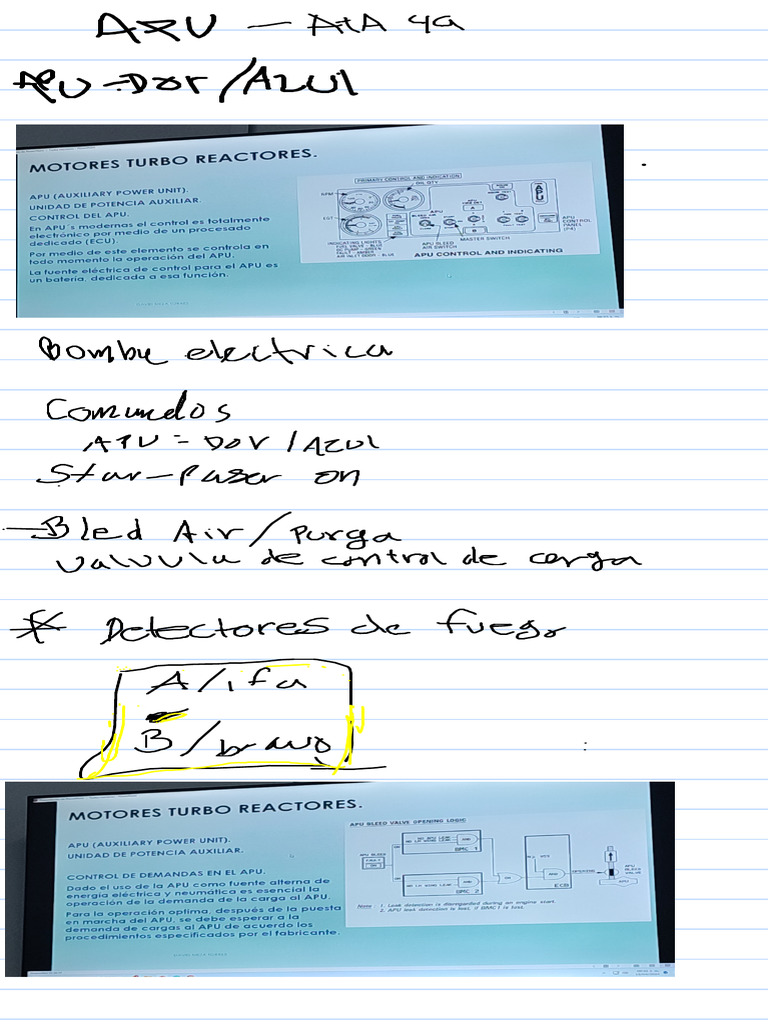 APU - AtA 49
APU - Dor / AZUL
MOTORES TURBO REACTORES.
APU (AUXILIARY POWER UNIT).
UNIDAD DE POTENCIA AUXILIAR.
CONTROL DEL APU.
En APU´s modernas el control es totalmente
electrónico por medio de un procesado
dedicado (ECU).
Por medio de este elemento se controla en
todo momento la operación del APU.
La fuente eléctrica de control para el APU es
un batería, dedicada a esa función.
PRIMARY CONTROL AND INDICATION
OIL QTY
RPM
EGT
APU
INDICATING LIGHTS:
FUEL VALVE - BLUE
OIL PUMP - GREEN
FAULT - AMBER
AIR INLET DOOR - BLUE
APU BLEED
AIR SWITCH
MASTER SWITCH
APU
CONTROL
PANEL
(P4)
APU CONTROL AND INDICATING
Bombe electrica
Comundos
APU = Dor / AZUL
Star - Puser on
- Bled Air / Purga
valvula de control de carga
* Detectores de fuego
A / lfa
B / bravo
MOTORES TURBO REACTORES.
APU (AUXILIARY POWER UNIT).
UNIDAD DE POTENCIA AUXILIAR.
CONTROL DE DEMANDAS EN EL APU.
Dado el uso de la APU como fuente alterna de
energía eléctrica y neumática es esencial la
operación de la demanda de la carga al APU.
Para la operación optima, después de la puesta
en marcha del APU, se debe esperar a la
demanda de cargas al APU de acuerdo los
procedimientos especificados por el fabricante.
APU BLEED VALVE OPENING LOGIC
APU BLEED
AND
BMC 1
BMC 2
OR
AND
ECB
APU
BLEED
VALVE
APU
Note 1. Leak detection is disregarded during an engine start.
2. APU leak detection is lost, if BMC 1 is lost.